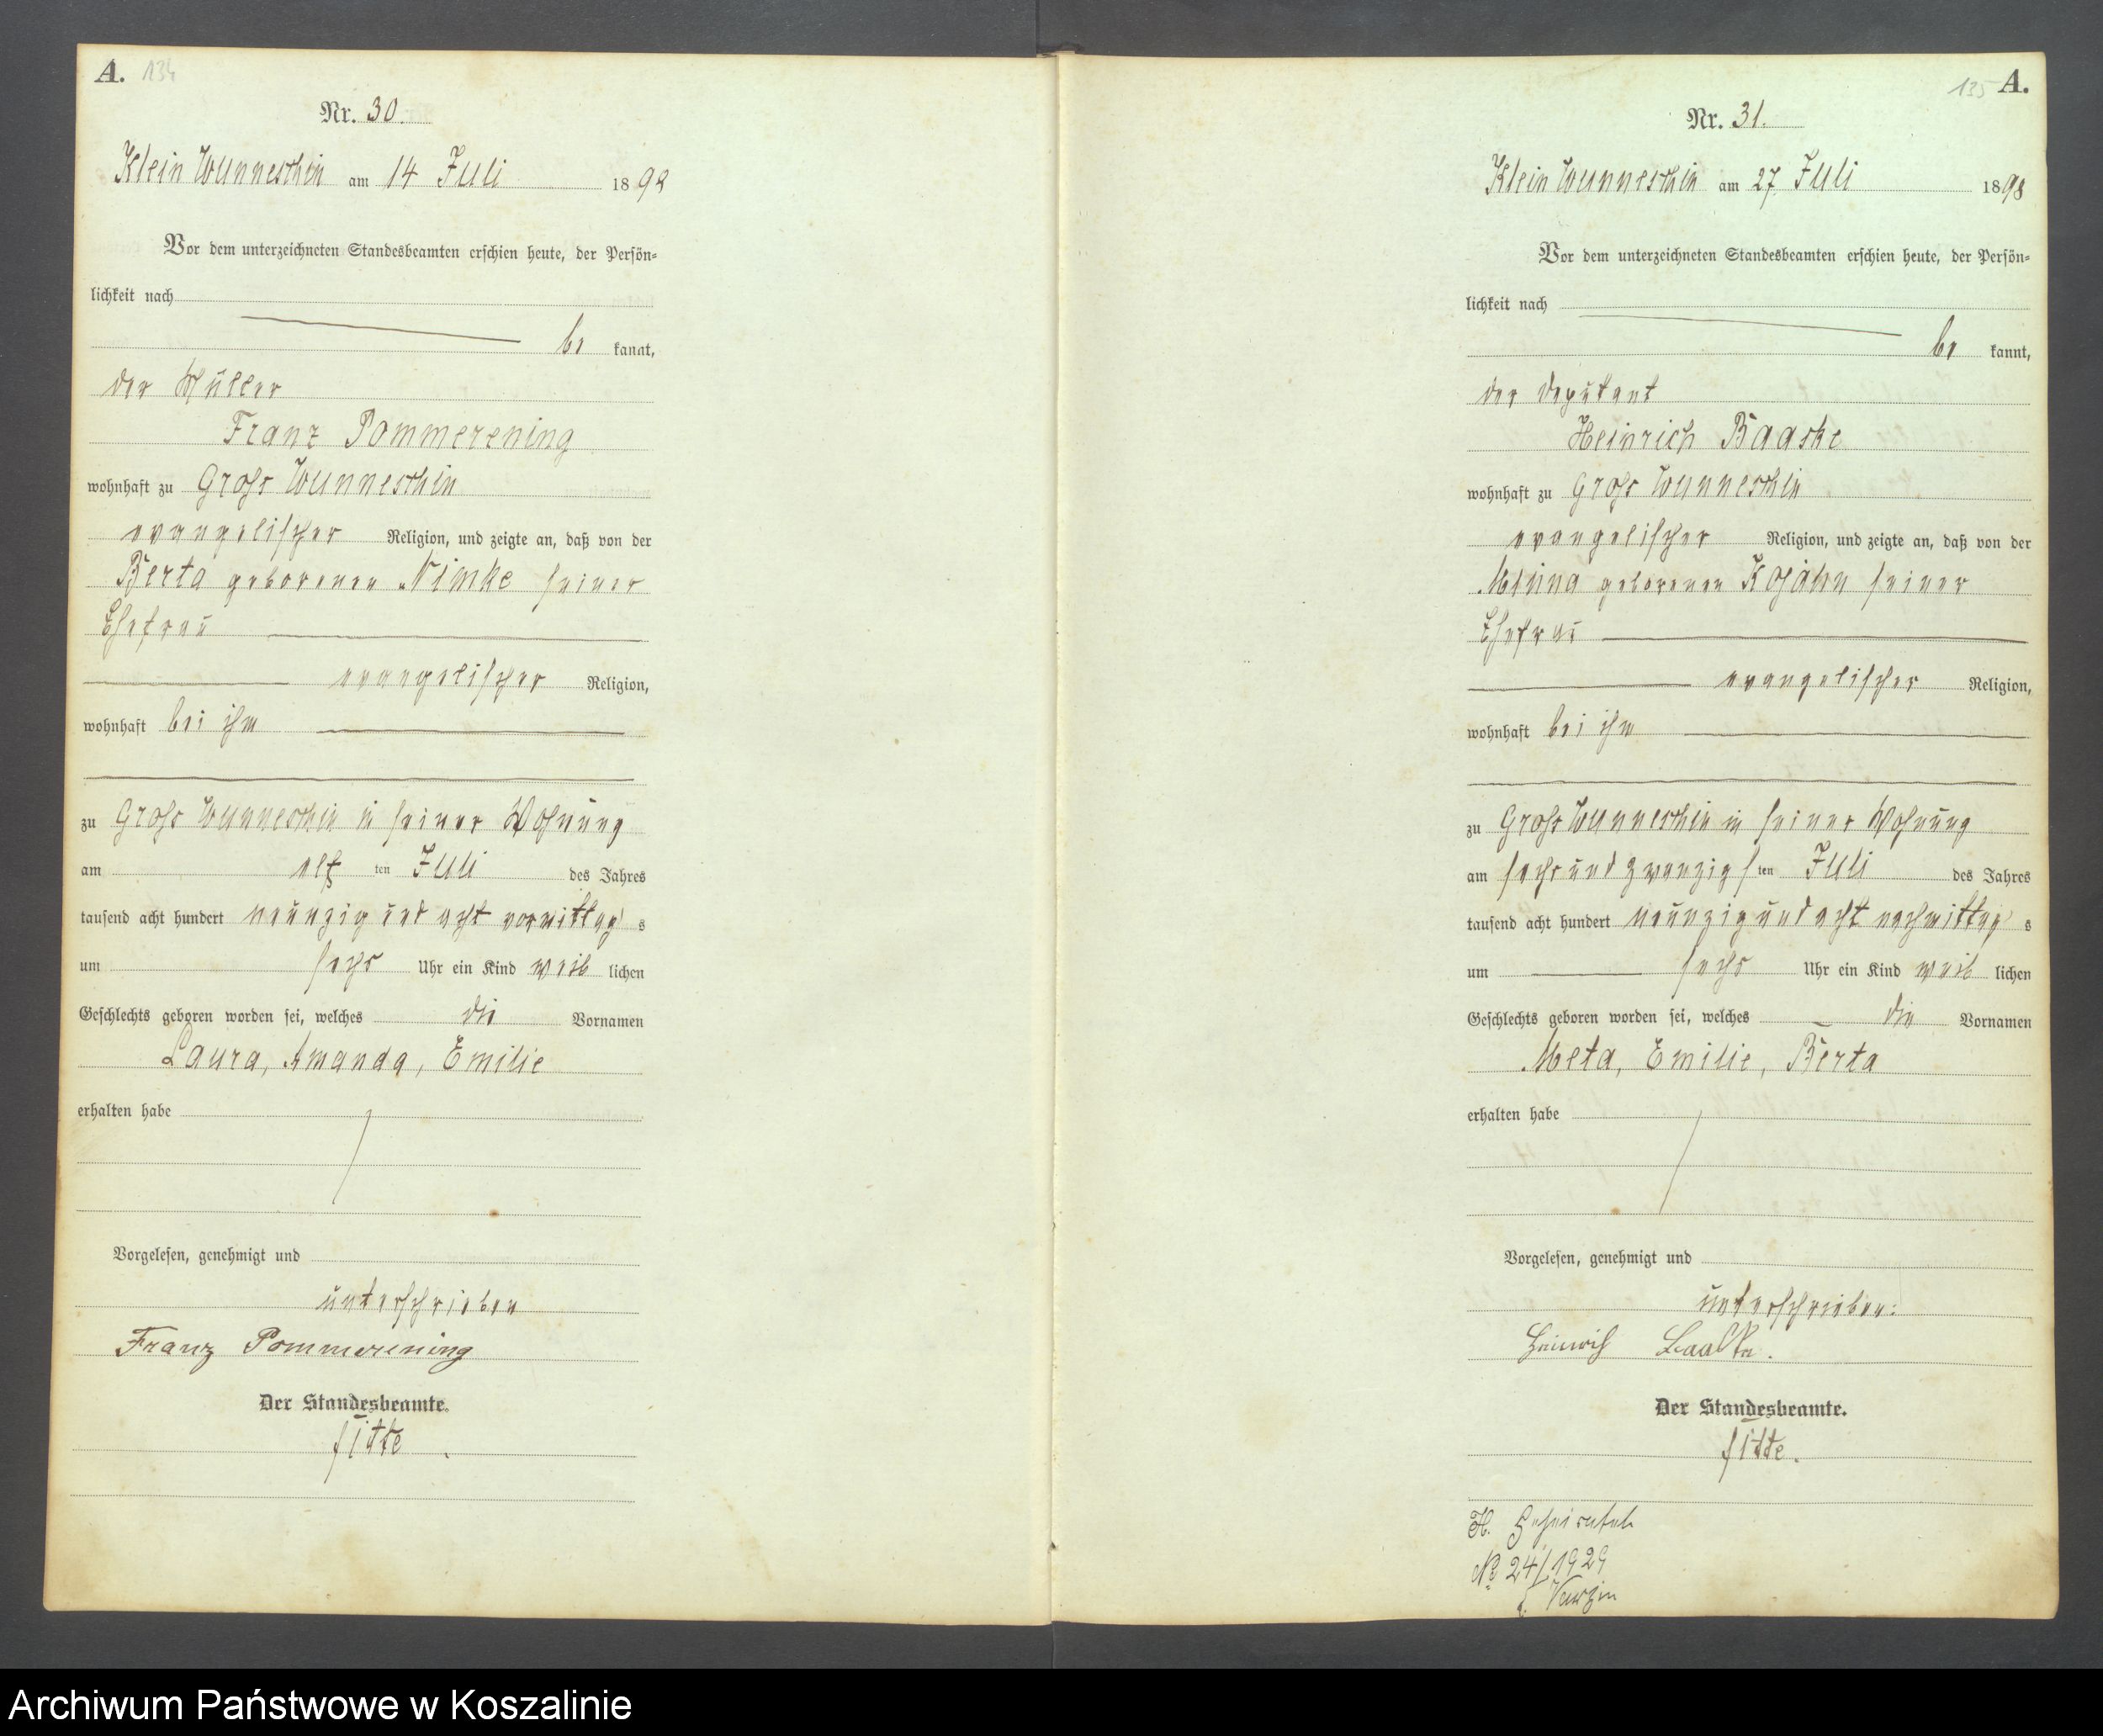 A. 134
Nr. 30.
Klein Wunneschin am 14 Juli 1898
Vor dem unterzeichneten Standesbeamten erschien heute, der Persön-
lichkeit nach
be kannt,
der Müller
Franz Pommerening
wohnhaft zu Groß Wunneschin
evangelischer Religion, und zeigte an, daß von der
Berta geborenen Nimke seiner
Ehefrau
evangelischer Religion,
wohnhaft bei ihm
zu Groß Wunneschin in seiner Wohnung
am elf ten Juli des Jahres
tausend acht hundert neunzig und acht vormittag s
um sechs Uhr ein Kind weib lichen
Geschlechts geboren worden sei, welches die Vornamen
Laura, Amanda, Emilie
erhalten habe
Vorgelesen, genehmigt und
unterschrieben
Franz Pommerening
Der Standesbeamte.
135 A.
Nr. 31.
Klein Wunneschin am 27. Juli 1898
Vor dem unterzeichneten Standesbeamten erschien heute, der Persön-
lichkeit nach
be kannt,
der Deputant
Heinrich Baaske
wohnhaft zu Groß Wunneschin
evangelischer Religion, und zeigte an, daß von der
Minna geborenen seiner
Ehefrau
evangelischer Religion,
wohnhaft bei ihm
zu Groß Wunneschin in seiner Wohnung
am sechs und zwanzigs ten Juli des Jahres
tausend acht hundert neunzig und acht nachmittag s
um sechs Uhr ein Kind weib lichen
Geschlechts geboren worden sei, welches die Vornamen
Meta, Emilie, Berta
erhalten habe
Vorgelesen, genehmigt und
unterschrieben:
Heinrich Baaske.
Der Standesbeamte.
No 24/1929
Archiwum Państwowe w Koszalinie